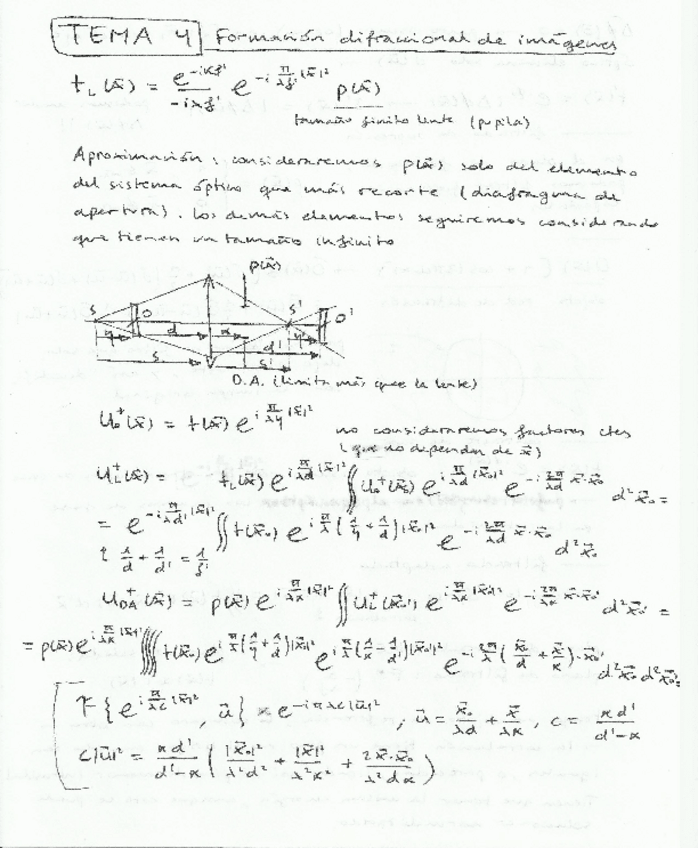 TEMA 4 Formación difraccional de imágenes
t_L(x⃗) = e^{-iκf'}/(-iλf') e^{-i π/(λf') |x⃗|²} p(x⃗)
tamaño finito lente (pupila)
Aproximación: consideraremos p(x⃗) solo del elemento
del sistema óptico que más recorte (diafragma de
apertura). Los demás elementos seguiremos considerando
que tienen un tamaño infinito
p(x⃗)
S O S' O'
y d x y'
d'
s s'
D.A. (limita más que la lente)
U₀⁺(x⃗) = t(x⃗) e^{i π/(λy) |x⃗|²} no consideraremos factores ctes
(que no dependan de x⃗)
U_L⁺(x⃗) = t_L(x⃗) e^{i π/(λd) |x⃗|²} ∫∫ U₀⁺(x⃗₀) e^{i π/(λd) |x⃗₀|²} e^{-i 2π/(λd) x⃗·x⃗₀} d²x⃗₀ =
= e^{-i π/(λd') |x⃗|²} ∫∫ t(x⃗₀) e^{i π/λ (1/y + 1/d) |x⃗₀|²} e^{-i 2π/(λd) x⃗·x⃗₀} d²x⃗₀
↑ 1/d + 1/d' = 1/f'
U_DA⁺(x⃗) = p(x⃗) e^{i π/(λx) |x⃗|²} ∫∫ U_L⁺(x⃗₀') e^{i π/(λx) |x⃗₀'|²} e^{-i 2π/(λx) x⃗·x⃗₀'} d²x⃗₀' =
= p(x⃗) e^{i π/(λx) |x⃗|²} ∫∫∫∫ t(x⃗₀) e^{i π/λ (1/y + 1/d) |x⃗₀|²} e^{i π/λ (1/x - 1/d') |x⃗₀'|²} e^{-i 2π/λ (x⃗₀/d + x⃗/x)·x⃗₀'} d²x⃗₀ d²x⃗₀' =
F{e^{i π/(λc) |x⃗|²}, u⃗} ∝ e^{-iπλc|u⃗|²}, u⃗ = x⃗₀/(λd) + x⃗/(λx), c = xd'/(d'-x)
c|u⃗|² = xd'/(d'-x) (|x⃗₀|²/(λ²d²) + |x⃗|²/(λ²x²) + 2x⃗·x⃗₀/(λ²dx))